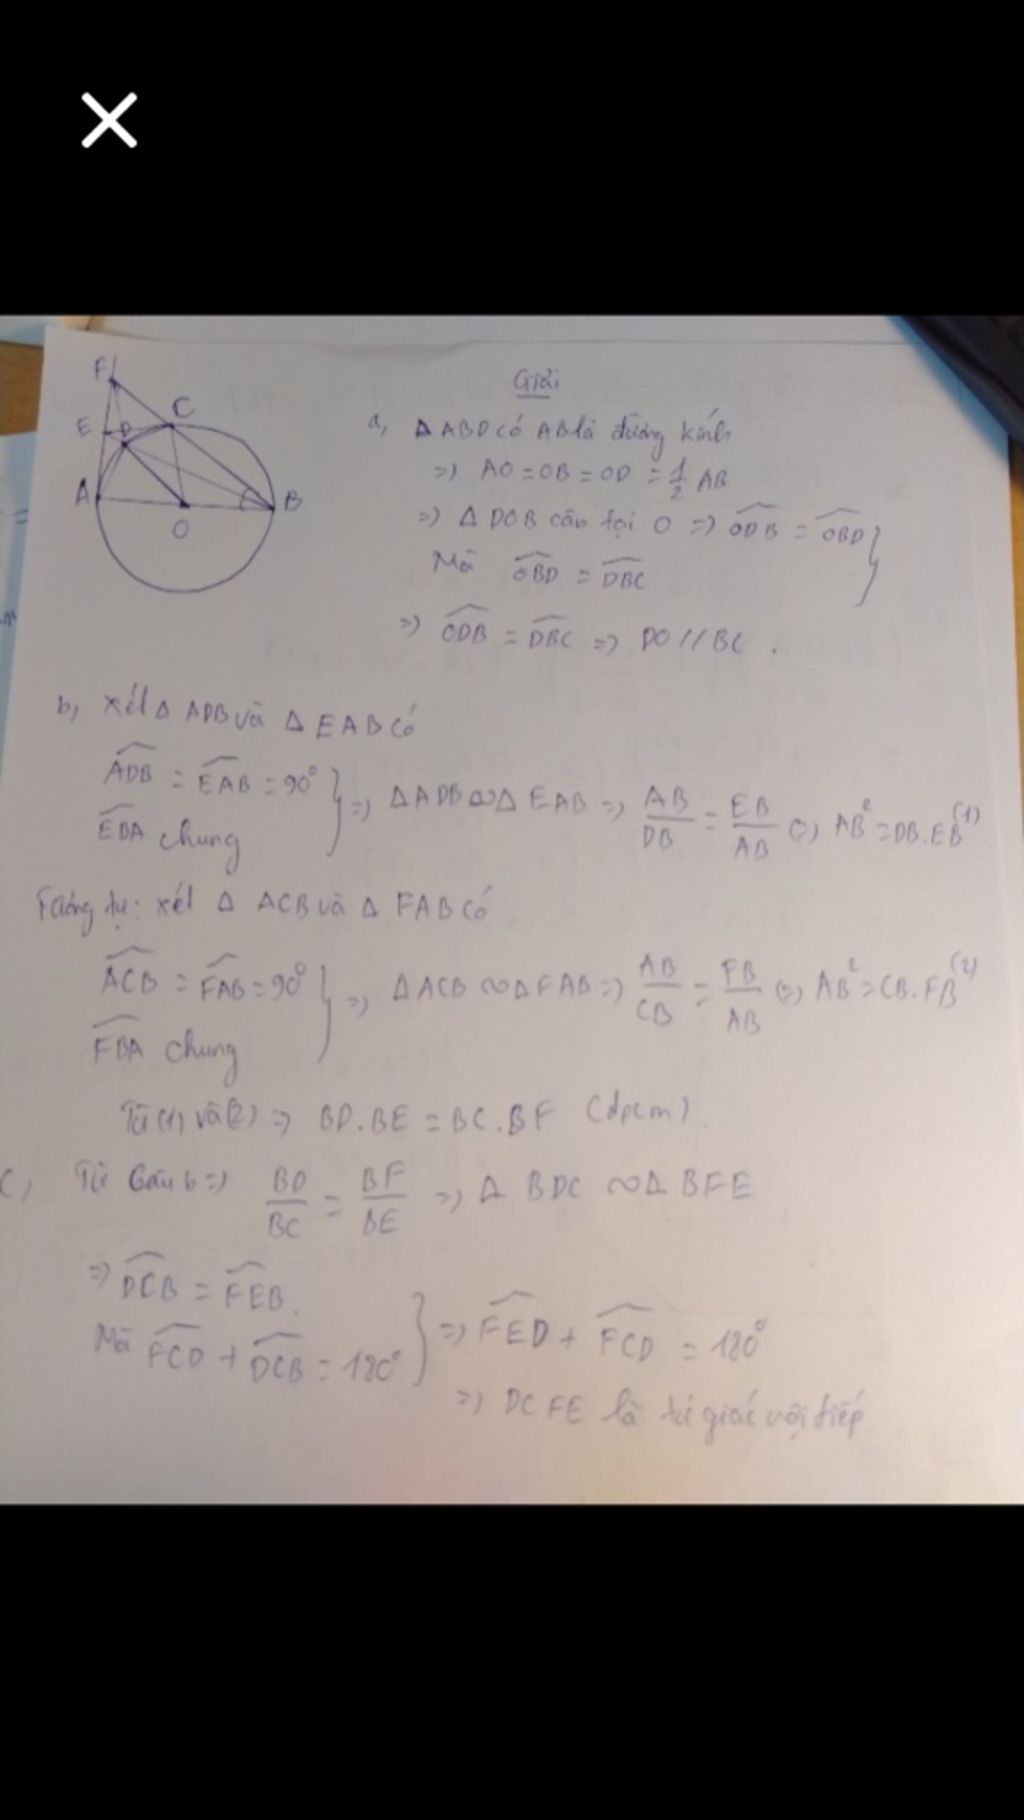 F
C
E
D
A
B
O
Giải
a, Δ ABD có AB là đường kính
=> AO = OB = OD = 1/2 AB
=> Δ DOB cân tại O => ODB = OBD
Mà OBD = DBC
=> ODB = DBC => DO // BC .
b, Xét Δ ADB và Δ EAB có
ADB = EAB = 90° => Δ ADB ∽ Δ EAB => AB/DB = EB/AB (=) AB² = DB.EB (1)
EBA chung
Tương tự: xét Δ ACB và Δ FAB có
ACB = FAB = 90° => Δ ACB ∽ Δ FAB => AB/CB = FB/AB (=) AB² = CB.FB (2)
FBA chung
Từ (1) và (2) => BD.BE = BC.BF (đpcm).
c, Từ Câu b => BD/BC = BF/BE => Δ BDC ∽ Δ BFE
=> DCB = FEB.
Mà FCD + DCB = 180° => FED + FCD = 180°
=> DCFE là tứ giác nội tiếp